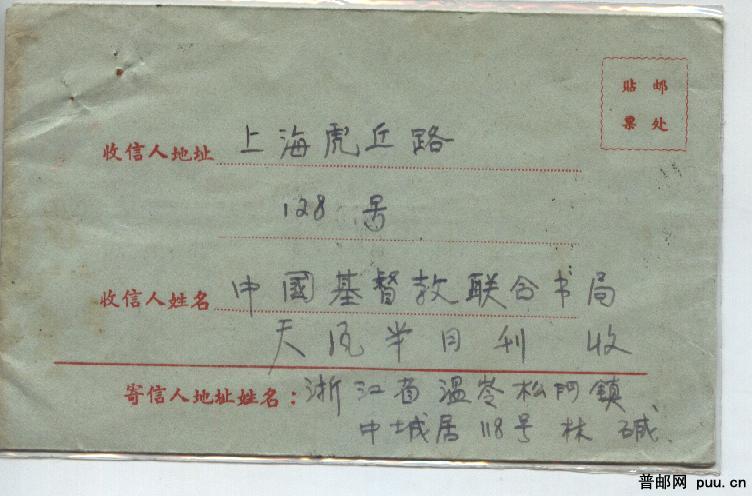 貼 邮
票 处
收信人地址 上海虎丘路
128 号
收信人姓名 中國基督教联合书局
天风半月刊 收
寄信人地址姓名：浙江省温苓松门鎮
中城居118号 林 碱
普邮网 puu.cn